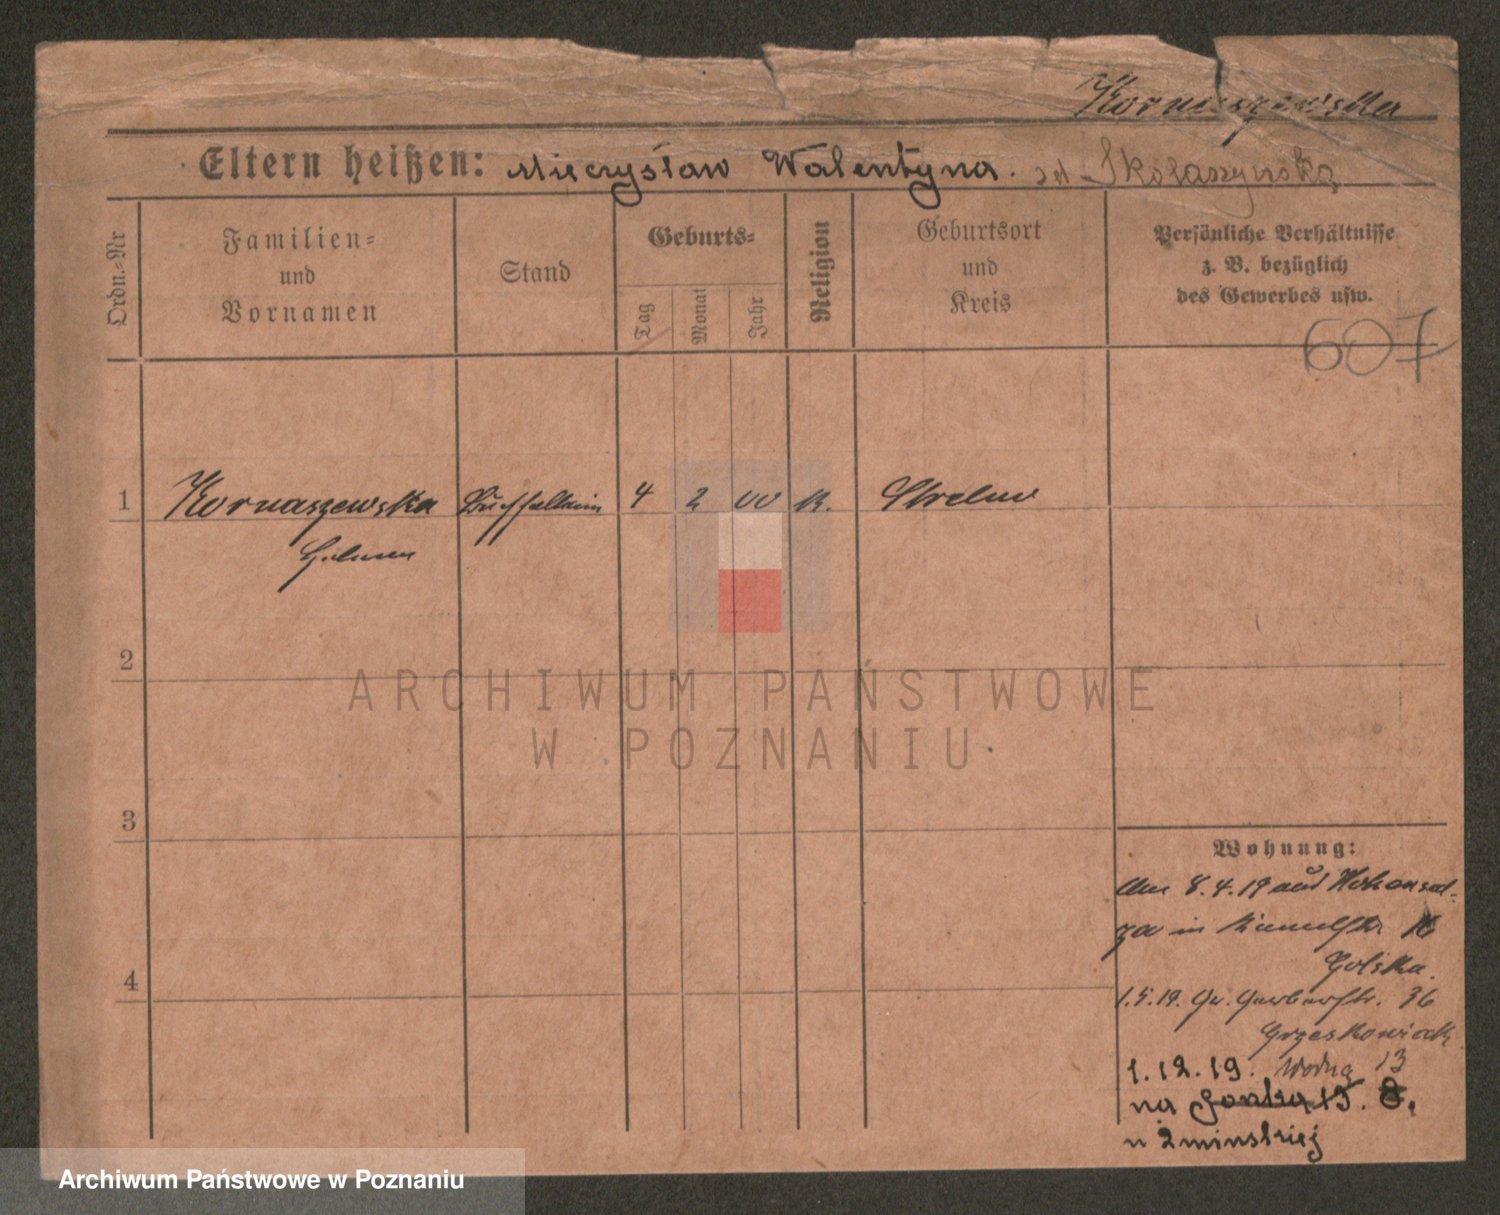 Kornaszewska
Eltern heißen: Mieczysław Walentyna. Skolaszynska
Ordn.-Nr
Familien-
und
Vornamen
Stand
Geburts-
Tag
Monat
Jahr
Religion
Geburtsort
und
Kreis
Persönliche Verhältnisse
z. B. bezüglich
des Gewerbes usw.
607
1 Kornaszewska Buchhalterin 4 2 00 K. Strelno
2
3
4
Wohnung:
Am 8.4.19 aus Hohensal-
za in 16
Golska.
1.5.19. Gr. Gerberstr. 36
Grzeskowiak
1.12.19. Wodna 13
na 15. 8.
u Zminskiej
ARCHIWUM PAŃSTWOWE
W POZNANIU
Archiwum Państwowe w Poznaniu